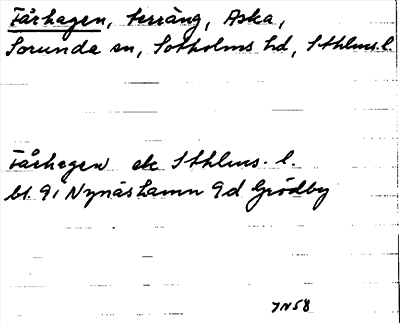 Fårhagen, terräng, Aska,
Sorunda sn, Sotholms hd, Sthlms. l.
Fårhagen ek Sthlms. l.
bl. 9i Nynäshamn 9d Grödby
JN58